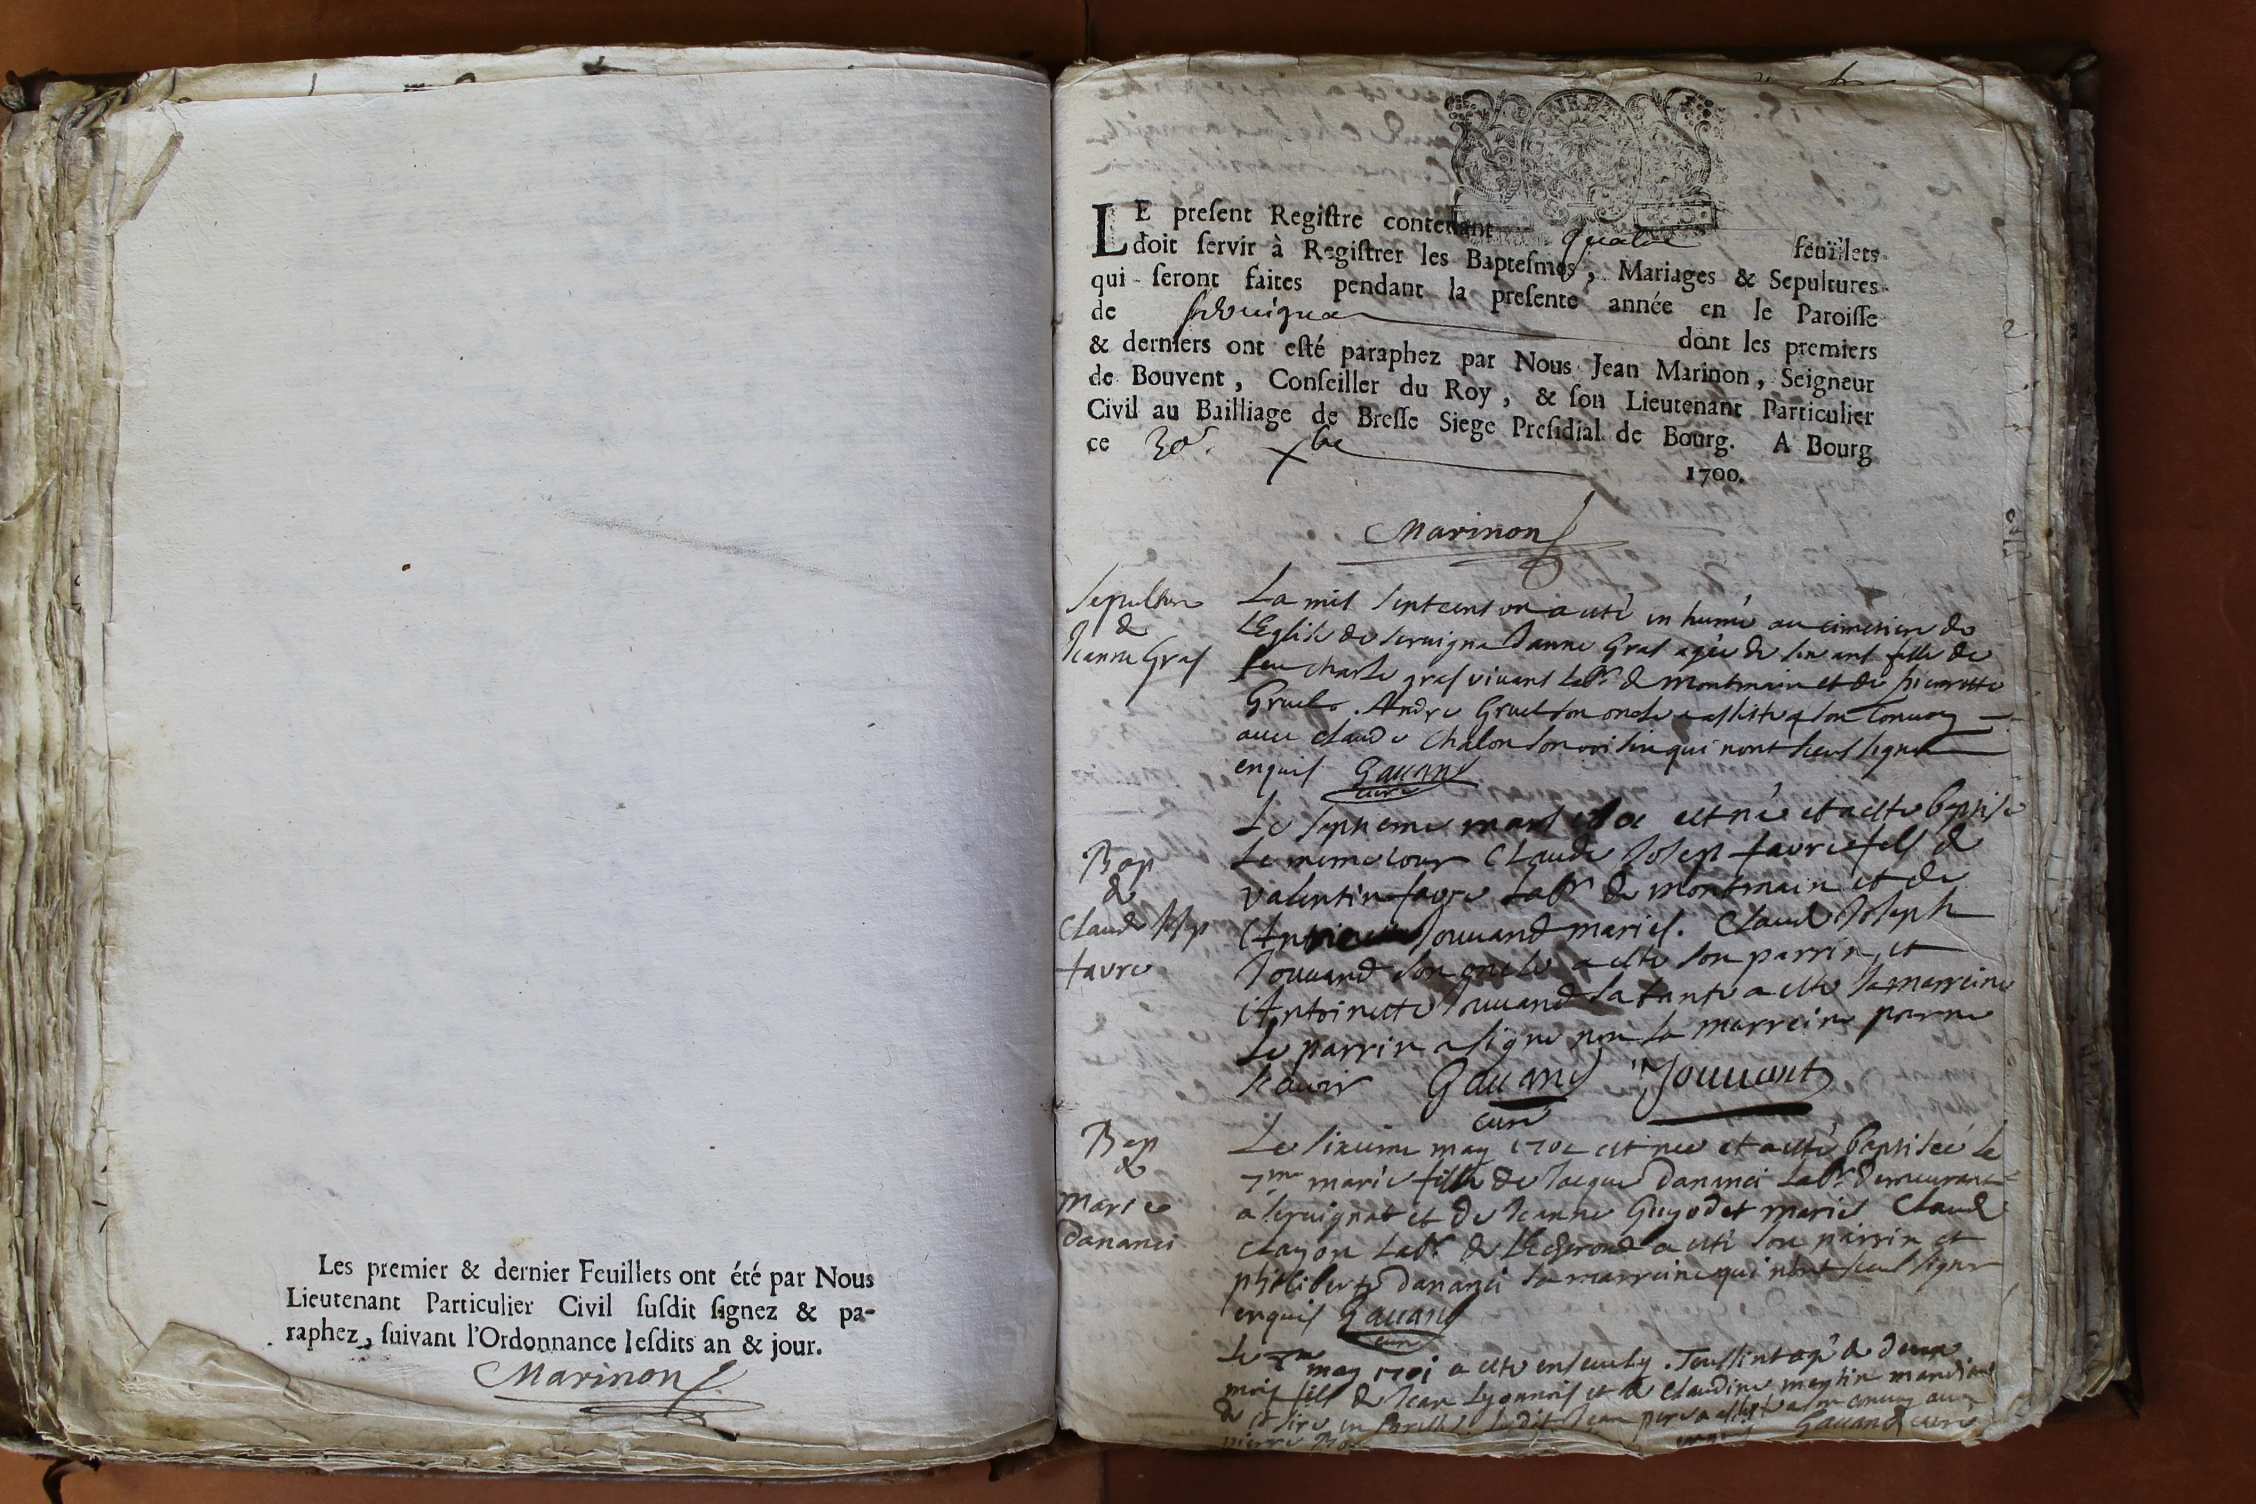 Les premier & dernier Feuillets ont été par Nous
Lieutenant Particulier Civil ſuſdit ſignez & pa-
raphez, ſuivant l'Ordonnance leſdits an & jour.
Marinon
LE preſent Regiſtre contenant quatre feüillets
doit ſervir à Regiſtrer les Bapteſmes, Mariages & Sepultures
qui ſeront faites pendant la preſente année en le Paroiſſe
de dont les premiers
& derniers ont eſté paraphez par Nous Jean Marinon, Seigneur
de Bouvent, Conſeiller du Roy, & ſon Lieutenant Particulier
Civil au Bailliage de Breſſe Siege Preſidial de Bourg. A Bourg
ce 30e. xbre 1700.
Marinon
Sepulture
de
Jeanne Gras
La mil septcent un a esté inhumé au cimetiere de
l'Eglise de servigna Janne Gras agée de six ans fille de
feu charle gras vivant labr de montmain et de pierrette
Gruel. Andre Gruel son oncle a assisté a son convoy
avec claude Chalon son voisin qui nont sceu signer
enquis Gavand
curé
Bap
de
Claude Josep
favre
Le septieme mars est né et a esté baptisé
le meme iour Claude Josep favre fils de
valentin favre labr de montmain et de
Jouvand mariés. Claude Joseph
Jouvand son oncle a esté son parrin et
Antoinette Jouvand sa tante a esté sa marreine
le parrin a signé non la marreine pour ne
scavoir Gavand Jouvant
curé
Bap
de
Marie
Dananci
Le sixieme may est née et a esté baptisée le
7me marie fille de Jacque Dananci labr demeurant
a servignat et de Jeanne Guyodet mariés Claude
Clayon labr de a esté son parrin et
philiberte Dananci sa marreine qui nont sceu signer
enquis Gavand
curé
Le may 1701 a esté ensevely Toussint agé de deux
mois fils de Jean Lyonnois et de claudine
ledit Jean pere a assisté a son convoy avec
pierre enquis Gavand curé